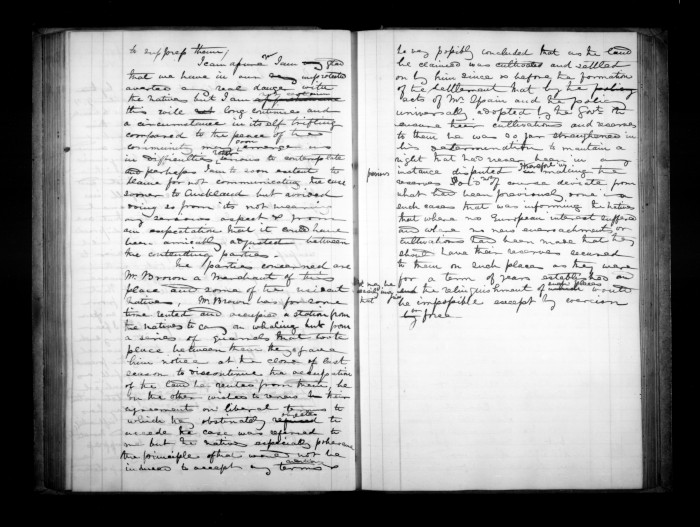 to suppress them
I can assure I am glad
that we have in our
averted any real danger with
the natives but I am
this will not long continue and
a circumstance in itself trifling
compared to the peace of the
community may soon
in difficulties to contemplate
and perhaps I am to soon
blame for not communicating the case
sooner to Auckland but avoided
doing so from its not wearing
any serious aspect & from
an expectation that it could have
been amicably adjusted between
the contending parties.
The parties concerned are
Mr Brown a merchant of this
place and some of the
natives, Mr Brown has for some
time rented and occupied a station from
the natives to carry on whaling but from
a series of quarrels that took
place between them they gave
him notice at the close of last
season to discontinue the occupation
of the land he rented from them, he
on the other wishes to renew their
agreement on liberal terms to
which they obstinately
accede the case was referred to
me but the natives especially
the principle of that would not be
induced to accept any terms
he very possibly concluded that as the land
he claimed was cultivated and settled
on by him since or before the formation
of the settlement that by the
acts of Mr Spain and the policy
universally adopted by the Govt to
assure their cultivations and reserves
to them he was so far strengthened in
his determination to maintain a
right that had never been in any
instance disputed therefore in making the
persons
reserves I did not of course deviate from
what had been previously done in
such cases that was informing the natives
that where no European interest suffered
and where no new encroachments or
cultivations had been made that they
should have their reserves secured
to them on such places, as they were
for a term of years established on
that
and the relinquishment of such places would
be impossible except by coercion
or force